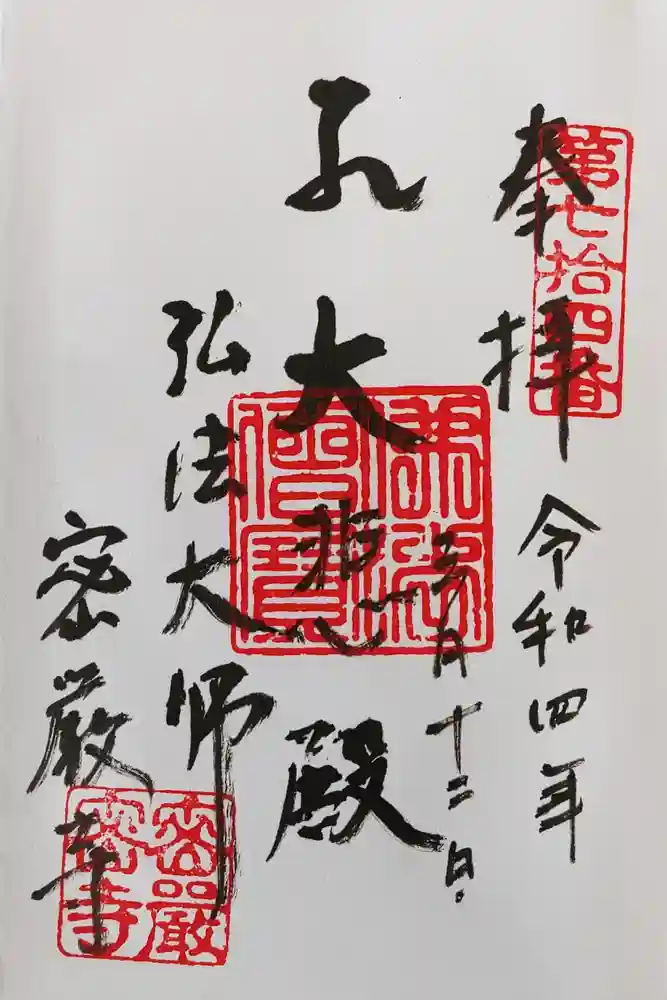 第七拾四番
奉拝
令和四年
月十二日
大悲殿
佛法僧寶
弘法大師
密厳寺